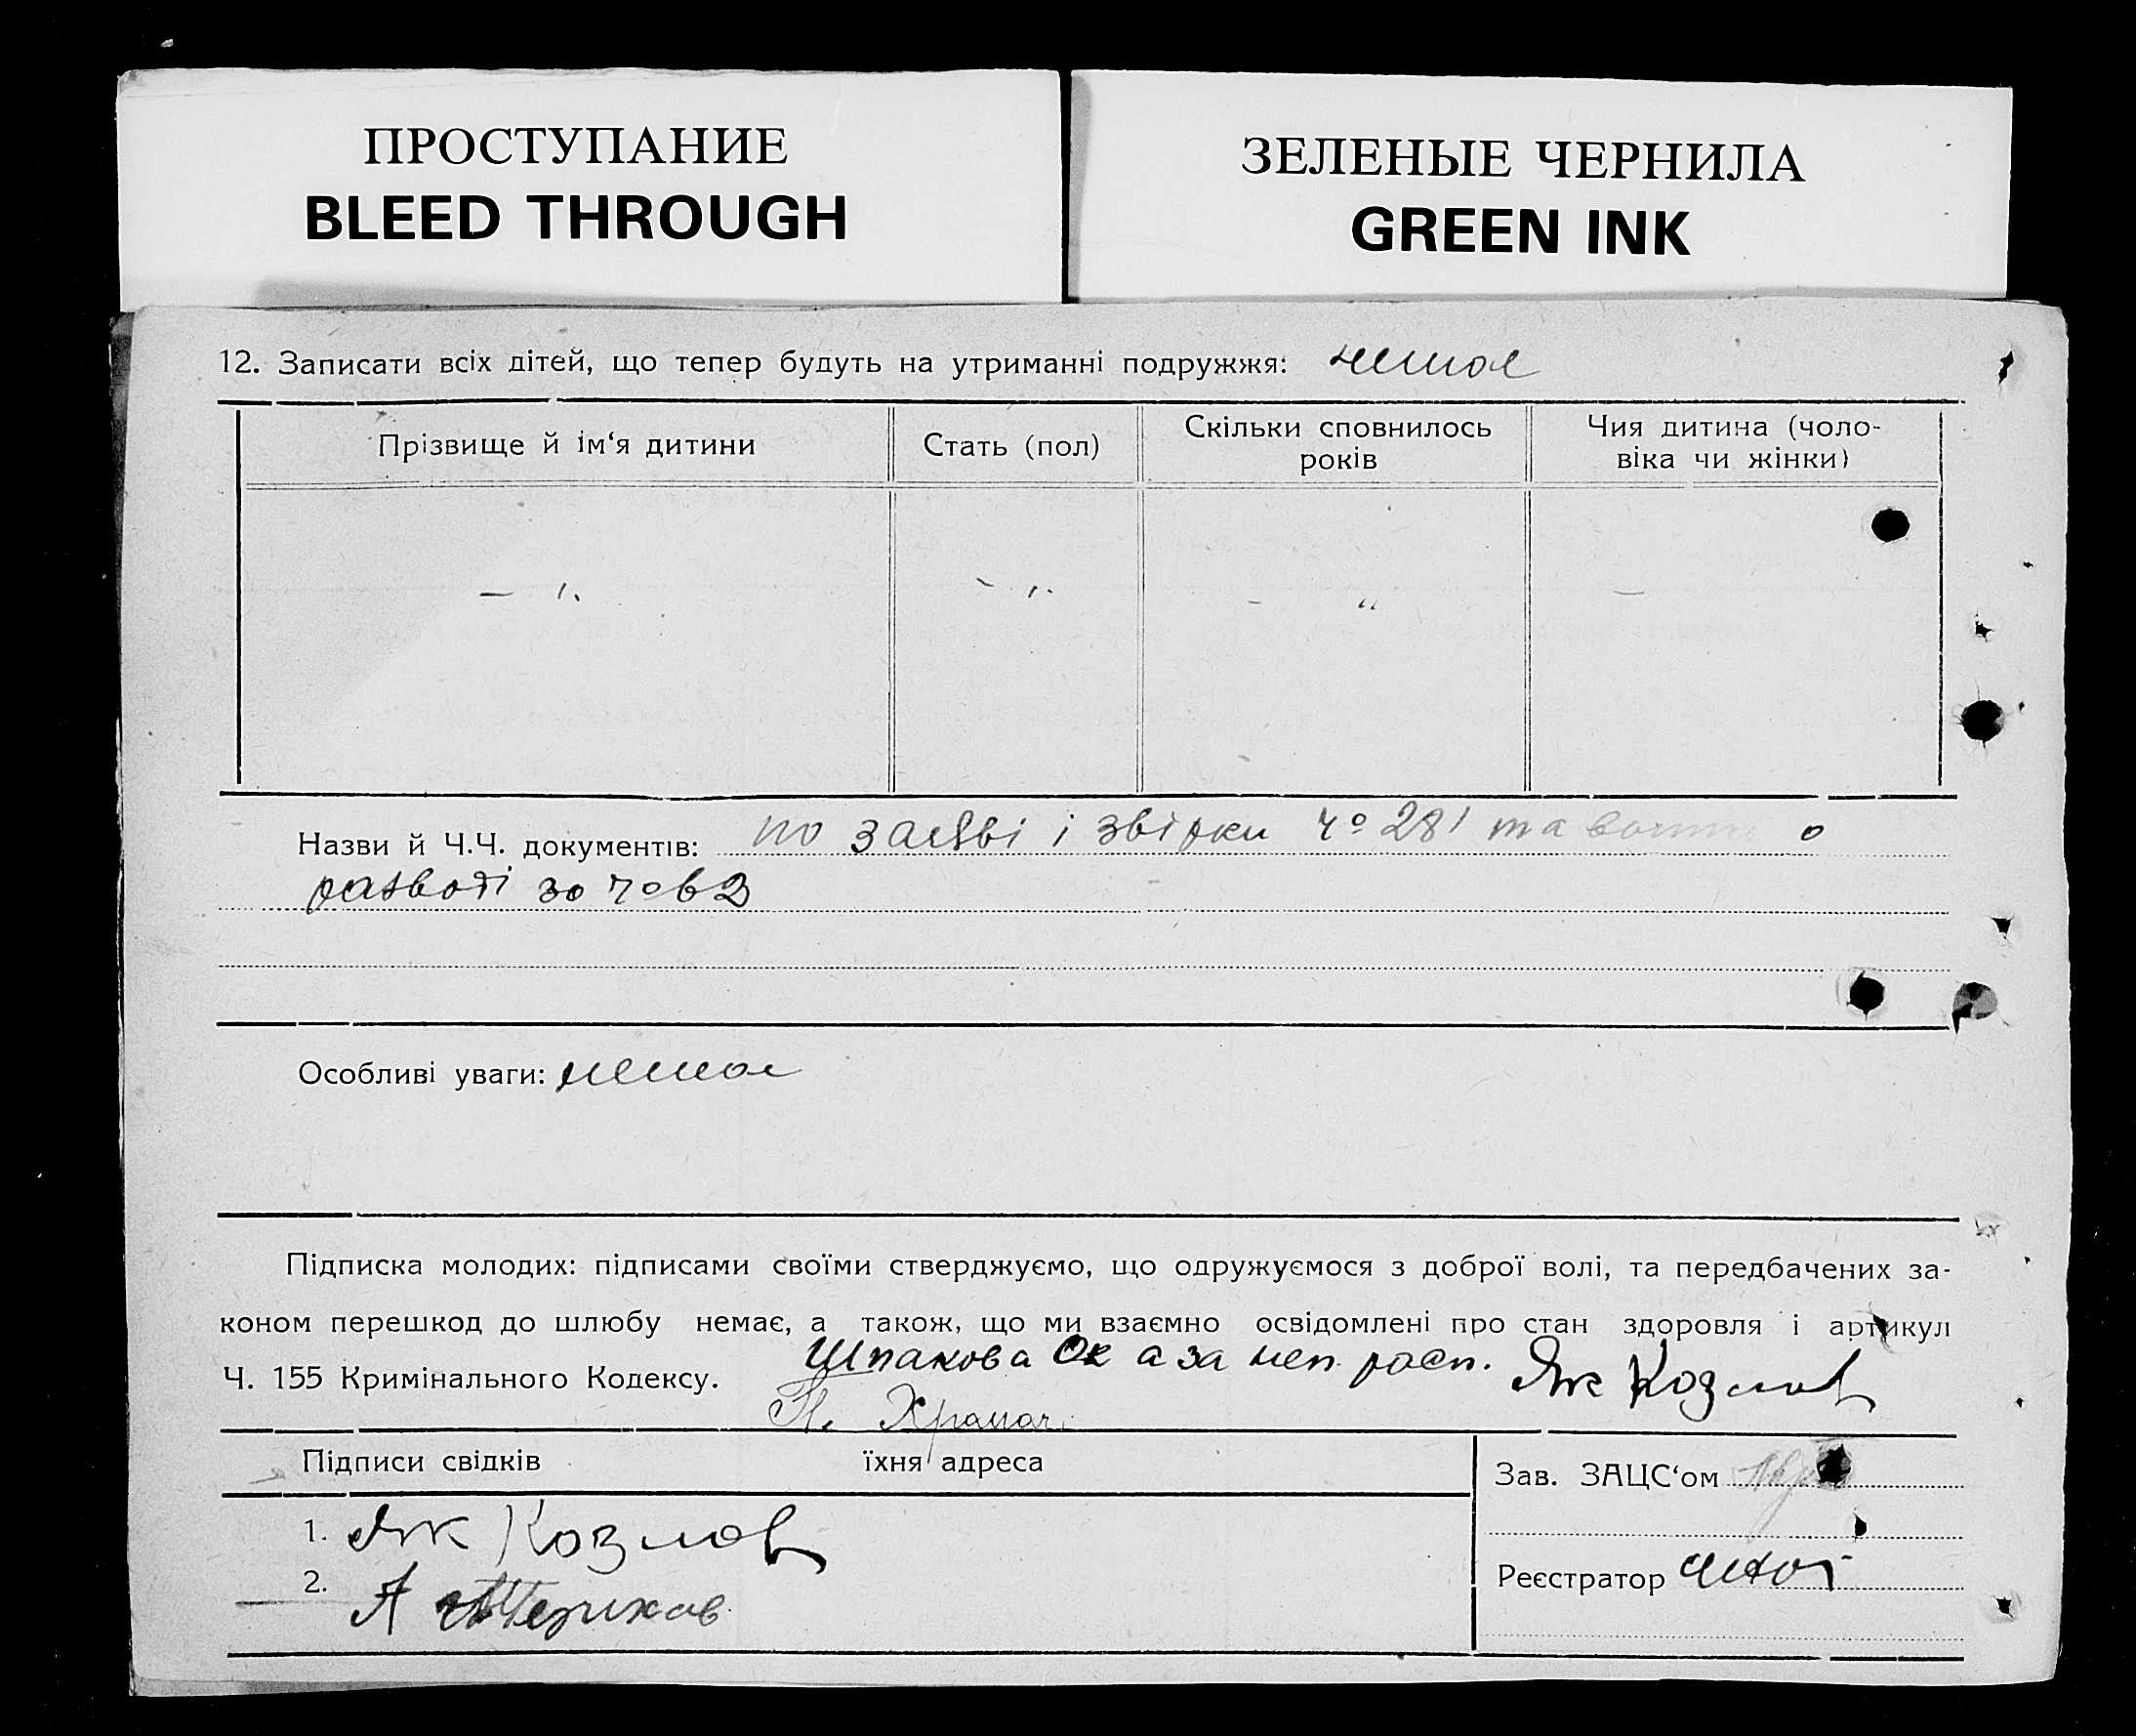 ПРОСТУПАНИЕ
BLEED THROUGH
ЗЕЛЕНЫЕ ЧЕРНИЛА
GREEN INK
12. Записати всіх дітей, що тепер будуть на утриманні подружжя: немає
Прізвище й ім‘я дитини
Стать (пол)
Скільки сповнилось
років
Чия дитина (чоло-
віка чи жінки)
Назви й Ч.Ч. документів: по заяві і звірки 281 та о
развоті за
Особливі уваги: немає
Підписка молодих: підписами своїми стверджуємо, що одружуємося з доброї волі, та передбачених за-
коном перешкод до шлюбу немає, а також, що ми взаємно освідомлені про стан здоровля і артикул
Ч. 155 Кримінального Кодексу. Шпакова а за неп. росп. Як Козлов
Підписи свідків
їхня адреса
1. Як Козлов
2. А
Зав. ЗАЦС‘ом
Реєстратор